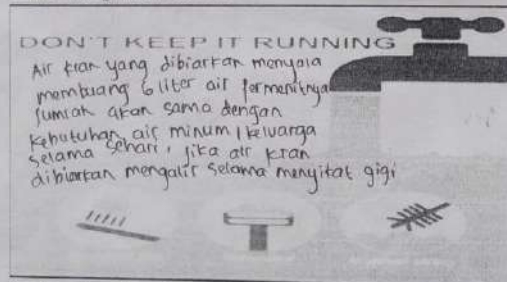 DON'T KEEP IT RUNNING
Air kran yang dibiarkan menyala
membuang 6 liter air permenitnya
Jumlah akan sama dengan
kebutuhan air minum 1 keluarga
selama sehari, jika air kran
dibiarkan mengalir selama menyikat gigi